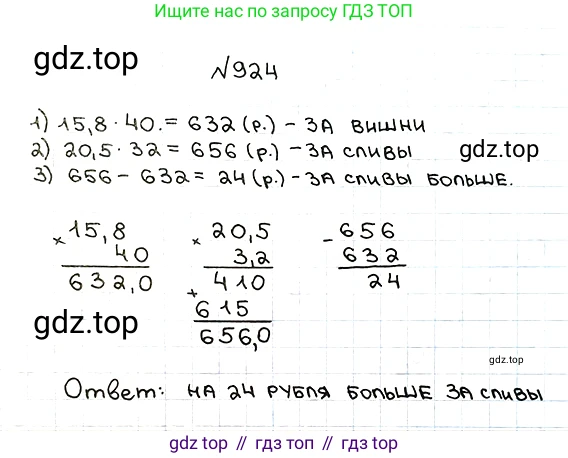 Ищите нас по запросу ГДЗ ТОП
gdz.top
№924
1) 15,8 · 40. = 632 (р.) - ЗА ВИШНИ
2) 20,5 · 32 = 656 (р.) - ЗА СЛИВЫ
gdz.top
3) 656 - 632 = 24 (р.) - ЗА СЛИВЫ БОЛЬШЕ.
× 15,8
40
632,0
× 20,5
3,2
410
+ 615
656,0
- 656
632
24
gdz.top
gdz.top
Ответ: НА 24 РУБЛЯ БОЛЬШЕ ЗА СЛИВЫ
gdz top // гдз топ // gdz.top